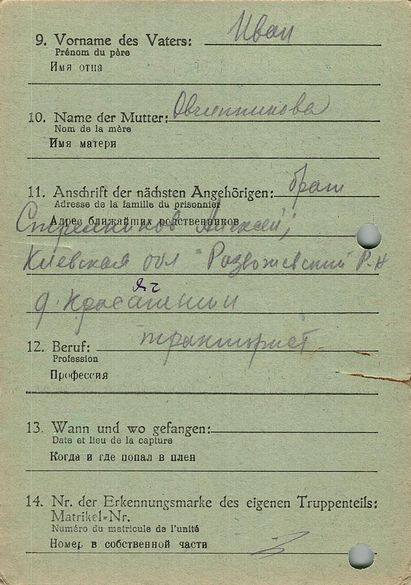 9. Vorname des Vaters: Иван
Prénom du père
Имя отца
10. Name der Mutter: Овчинникова
Nom de la mère
Имя матери
11. Anschrift der nächsten Angehörigen: брат
Adresse de la famille du prisonnier
Адрес ближайших родственников
Алексей,
Киевская обл Розважевский р-н
д.
12. Beruf: тракторист
Profession
Профессия
13. Wann und wo gefangen:
Date et lieu de la capture
Когда и где попал в плен
14. Nr. der Erkennungsmarke des eigenen Truppenteils:
Matrikel-Nr.
Numéro du matricule de l'unité
Номер в собственной части